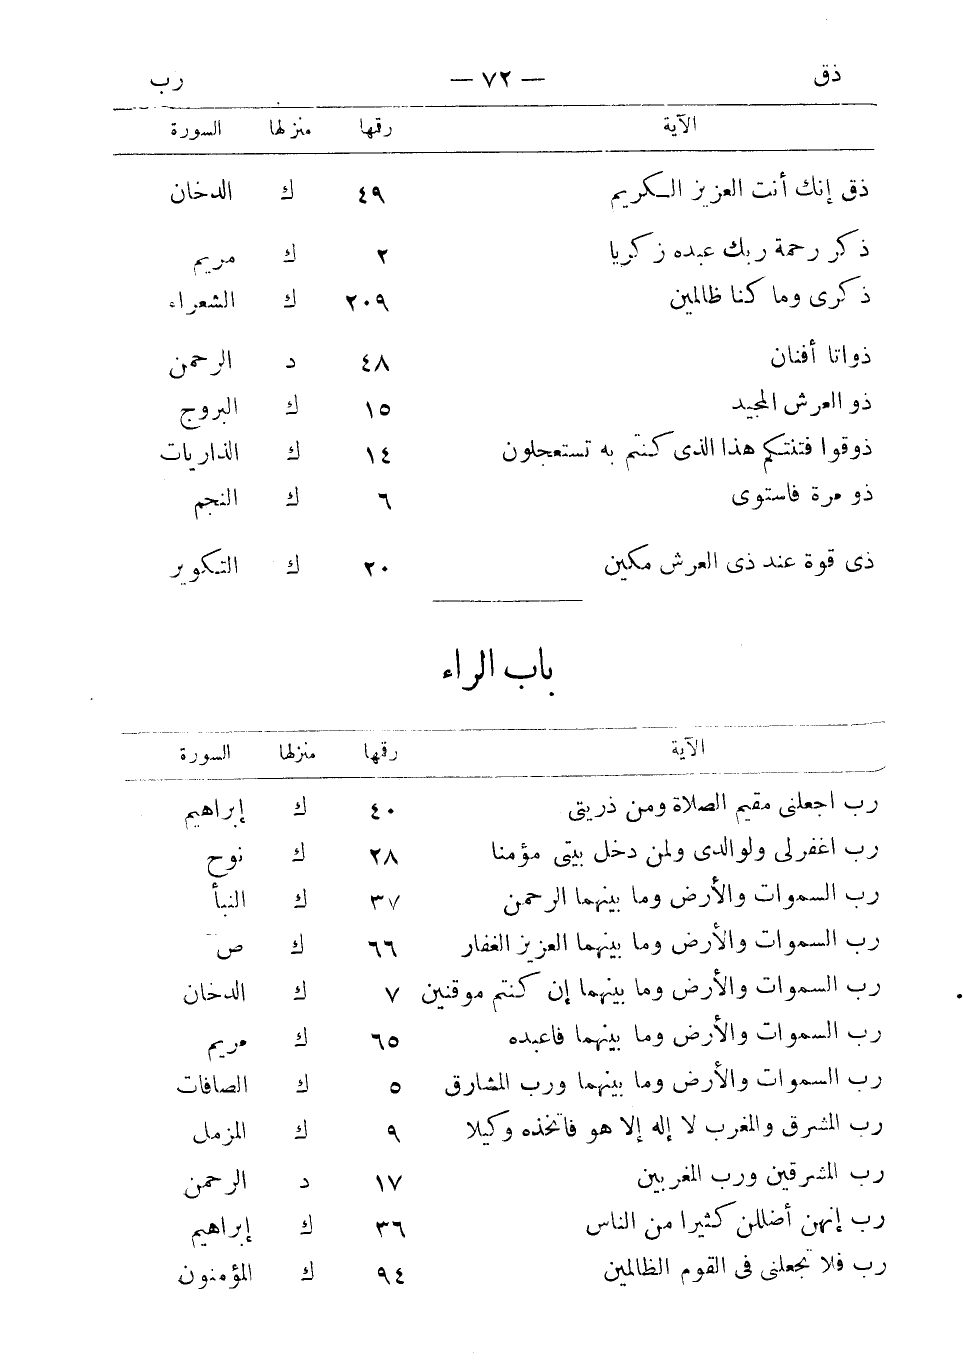 ذق — ٧٢ — رب
الآية رقمها منزلها السورة
ذق إنك أنت العزيز الكريم ٤٩ ك الدخان
ذكر رحمة ربك عبده زكريا ٢ ك مريم
ذكرى وما كنا ظالمين ٢٠٩ ك الشعراء
ذواتا أفنان ٤٨ د الرحمن
ذو العرش المجيد ١٥ ك البروج
ذوقوا فتنتكم هذا الذى كنتم به تستعجلون ١٤ ك الذاريات
ذو مرة فاستوى ٦ ك النجم
ذى قوة عند ذى العرش مكين ٢٠ ك التكوير
باب الراء
الآية رقمها منزلها السورة
رب اجعلنى مقيم الصلاة ومن ذريتى ٤٠ ك إبراهيم
رب اغفر لى ولوالدى ولمن دخل بيتى مؤمنا ٢٨ ك نوح
رب السموات والأرض وما بينهما الرحمن ٣٧ ك النبأ
رب السموات والأرض وما بينهما العزيز الغفار ٦٦ ك ص
رب السموات والأرض وما بينهما إن كنتم موقنين ٧ ك الدخان
رب السموات والأرض وما بينهما فاعبده ٦٥ ك مريم
رب السموات والأرض وما بينهما ورب المشارق ٥ ك الصافات
رب المشرق والمغرب لا إله إلا هو فاتخذه وكيلا ٩ ك المزمل
رب المشرقين ورب المغربين ١٧ د الرحمن
رب إنهن أضللن كثيرا من الناس ٣٦ ك إبراهيم
رب فلا تجعلنى فى القوم الظالمين ٩٤ ك المؤمنون